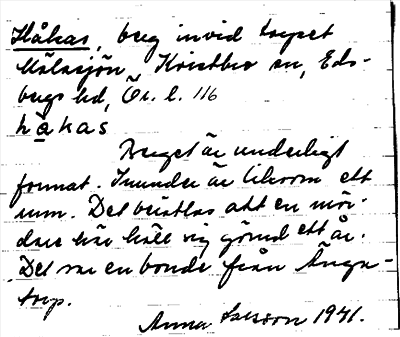 Håkas, berg invid torpet
Mölnsjön, Kvistbro sn, Eds-
bergs hd, Ör. l. 116
håkas
Berget är underligt
format. Inunder är liksom ett
rum. Det berättas att en mör-
dare här höll sig gömd ett år.
Det var en bonde från Änga-
torp.
Anna Larsson 1941.